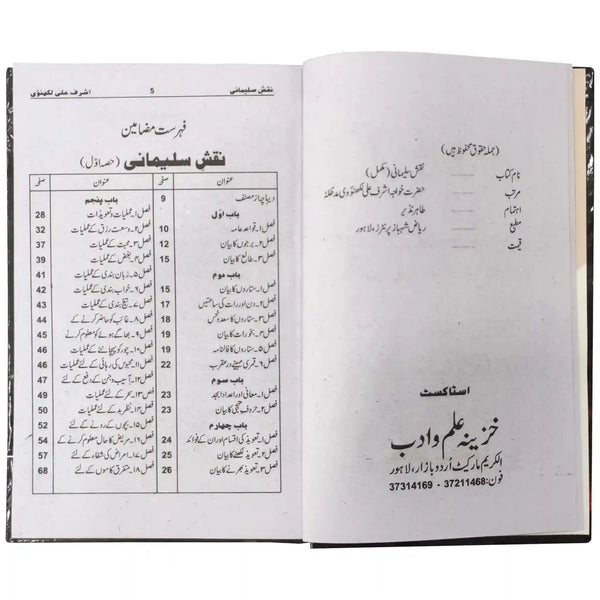 نقش سلیمانی 5 اشرف علی لکھنوی
فہرست مضامین
نقش سلیمانی (حصہ اوّل)
عنوان صفحہ
دیباچہ از مصنف 9
باب اوّل
فصل ۱۔ قواعد عامہ 10
فصل ۲۔ برجوں کا بیان 12
فصل ۳۔ طالع کا بیان 15
باب دوم
فصل ۱۔ ستاروں کا بیان 15
فصل ۲۔ دن اور رات کی ساعتیں 17
فصل ۳۔ ستاروں کا سعد و نحس 18
فصل ۴۔ بخورات کا بیان 19
فصل ۵۔ ستاروں کا فالنامہ 19
فصل ۶۔ قمری مہینے و عقرب 22
باب سوم
فصل ۱۔ معانی اور اعداد ابجد 23
فصل ۲۔ حروف تہجی کا بیان 23
باب چہارم
فصل ۱۔ تعویذ کی اقسام اور ان کے فوائد 24
فصل ۲۔ تعویذ لکھنے کا بیان 25
فصل ۳۔ تعویذ بھرنے کا بیان 26
عنوان صفحہ
باب پنجم
فصل ۱۔ عملیات و تعویذات 28
فصل ۲۔ وسعت رزق کے عملیات 32
فصل ۳۔ محبت کے عملیات 37
فصل ۴۔ بغض کے عملیات 39
فصل ۵۔ زبان بندی کے عملیات 41
فصل ۶۔ خواب بندی کے عملیات 42
فصل ۷۔ تیغ بندی کے عملیات 43
فصل ۸۔ غائب کو حاضر کرنے کے 44
فصل ۹۔ بھاگے ہوئے کو معلوم کرنے کے 45
فصل ۱۰۔ چور کو پہچاننے کے عملیات 46
فصل ۱۱۔ محبوس کی رہائی کے لئے 46
فصل ۱۲۔ آسیب و جن کے دفع کے لئے 46
فصل ۱۳۔ سحر کے لئے 49
فصل ۱۴۔ نظر بد کے لئے 50
فصل ۱۵۔ بچوں کے رونے کے لئے 52
فصل ۱۶۔ مریض کا حال معلوم کرنے کے 54
فصل ۱۷۔ امراض کی شفاء کے لئے 57
فصل ۱۸۔ متفرق کاموں کے لئے 68
(جملہ حقوق محفوظ ہیں)
نام کتاب نقش سلیمانی (مکمل)
مرتب حضرت خواجہ اشرف علی لکھنوی مدظلہٗ
اہتمام طاہر نذیر
مطبع ریاض شہباز پرنٹرز، لاہور
قیمت
اسٹاکسٹ
خزینہ علم و ادب
الکریم مارکیٹ اُردو بازار، لاہور
فون: 37211468 - 37314169